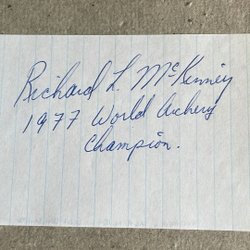 Richard L. McKinney
1977 World Archery
Champion.